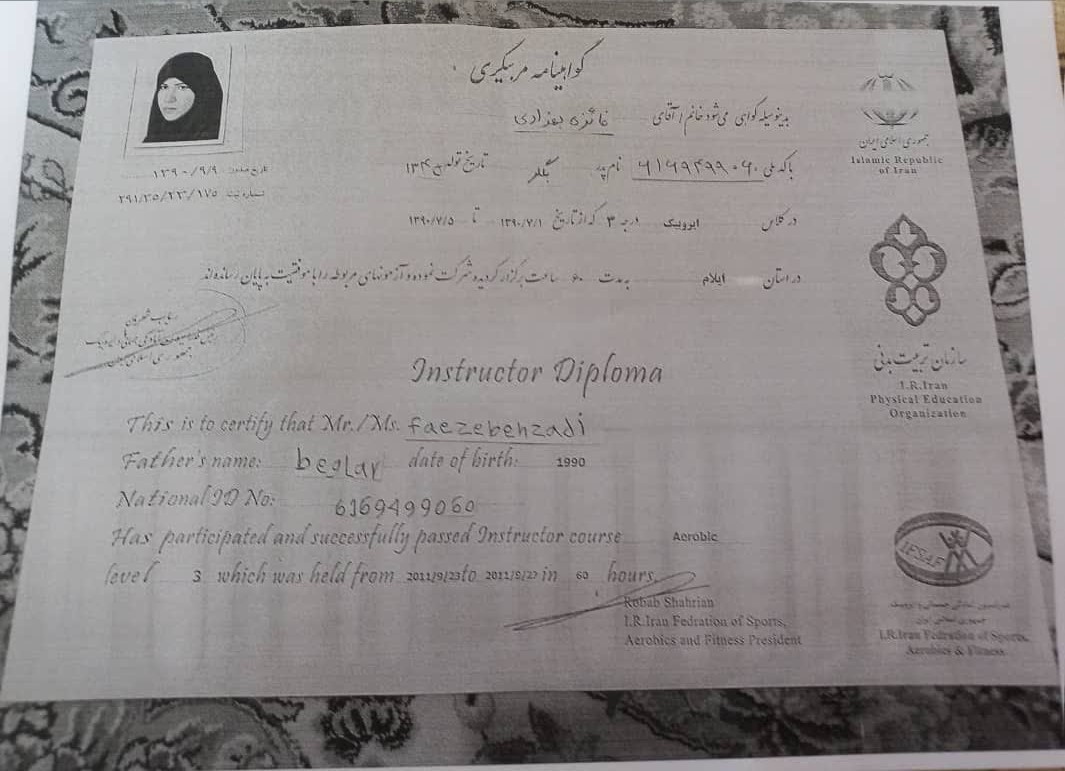 گواهینامه مربیگری
بدینوسیله گواهی می‌شود خانم / آقای فائزه بهزادی
با کد ملی ۶۱۶۹۴۹۹۰۶۰ نام پدر بگلر تاریخ تولد
در کلاس ایروبیک درجه ۳ که از تاریخ ۱۳۹۰/۷/۱ تا ۱۳۹۰/۷/۵
در استان ایلام به مدت ۶۰ ساعت برگزار گردیده شرکت نموده و آزمونهای مربوطه را با موفقیت به پایان رسانده‌اند
تاریخ صدور: ۱۳۹۰/۹/۹
شماره ثبت: ۲۹۱/۳۵/۲۳/۱۷۵
جمهوری اسلامی ایران
Islamic Republic
of Iran
سازمان تربیت بدنی
I.R.Iran
Physical Education
Organization
Instructor Diploma
This is to certify that Mr./Ms. faezebehzadi
Father's name: beglar date of birth: 1990
National ID No: 6169499060
Has participated and successfully passed Instructor course Aerobic
level 3 which was held from 2011/9/23 to 2011/9/27 in 60 hours
Robab Shahrian
I.R.Iran Fedration of Sports,
Aerobics and Fitness President
IFSAF
جمهوری اسلامی ایران
I.R.Iran Fedration of Sports,
Aerobics & Fitness